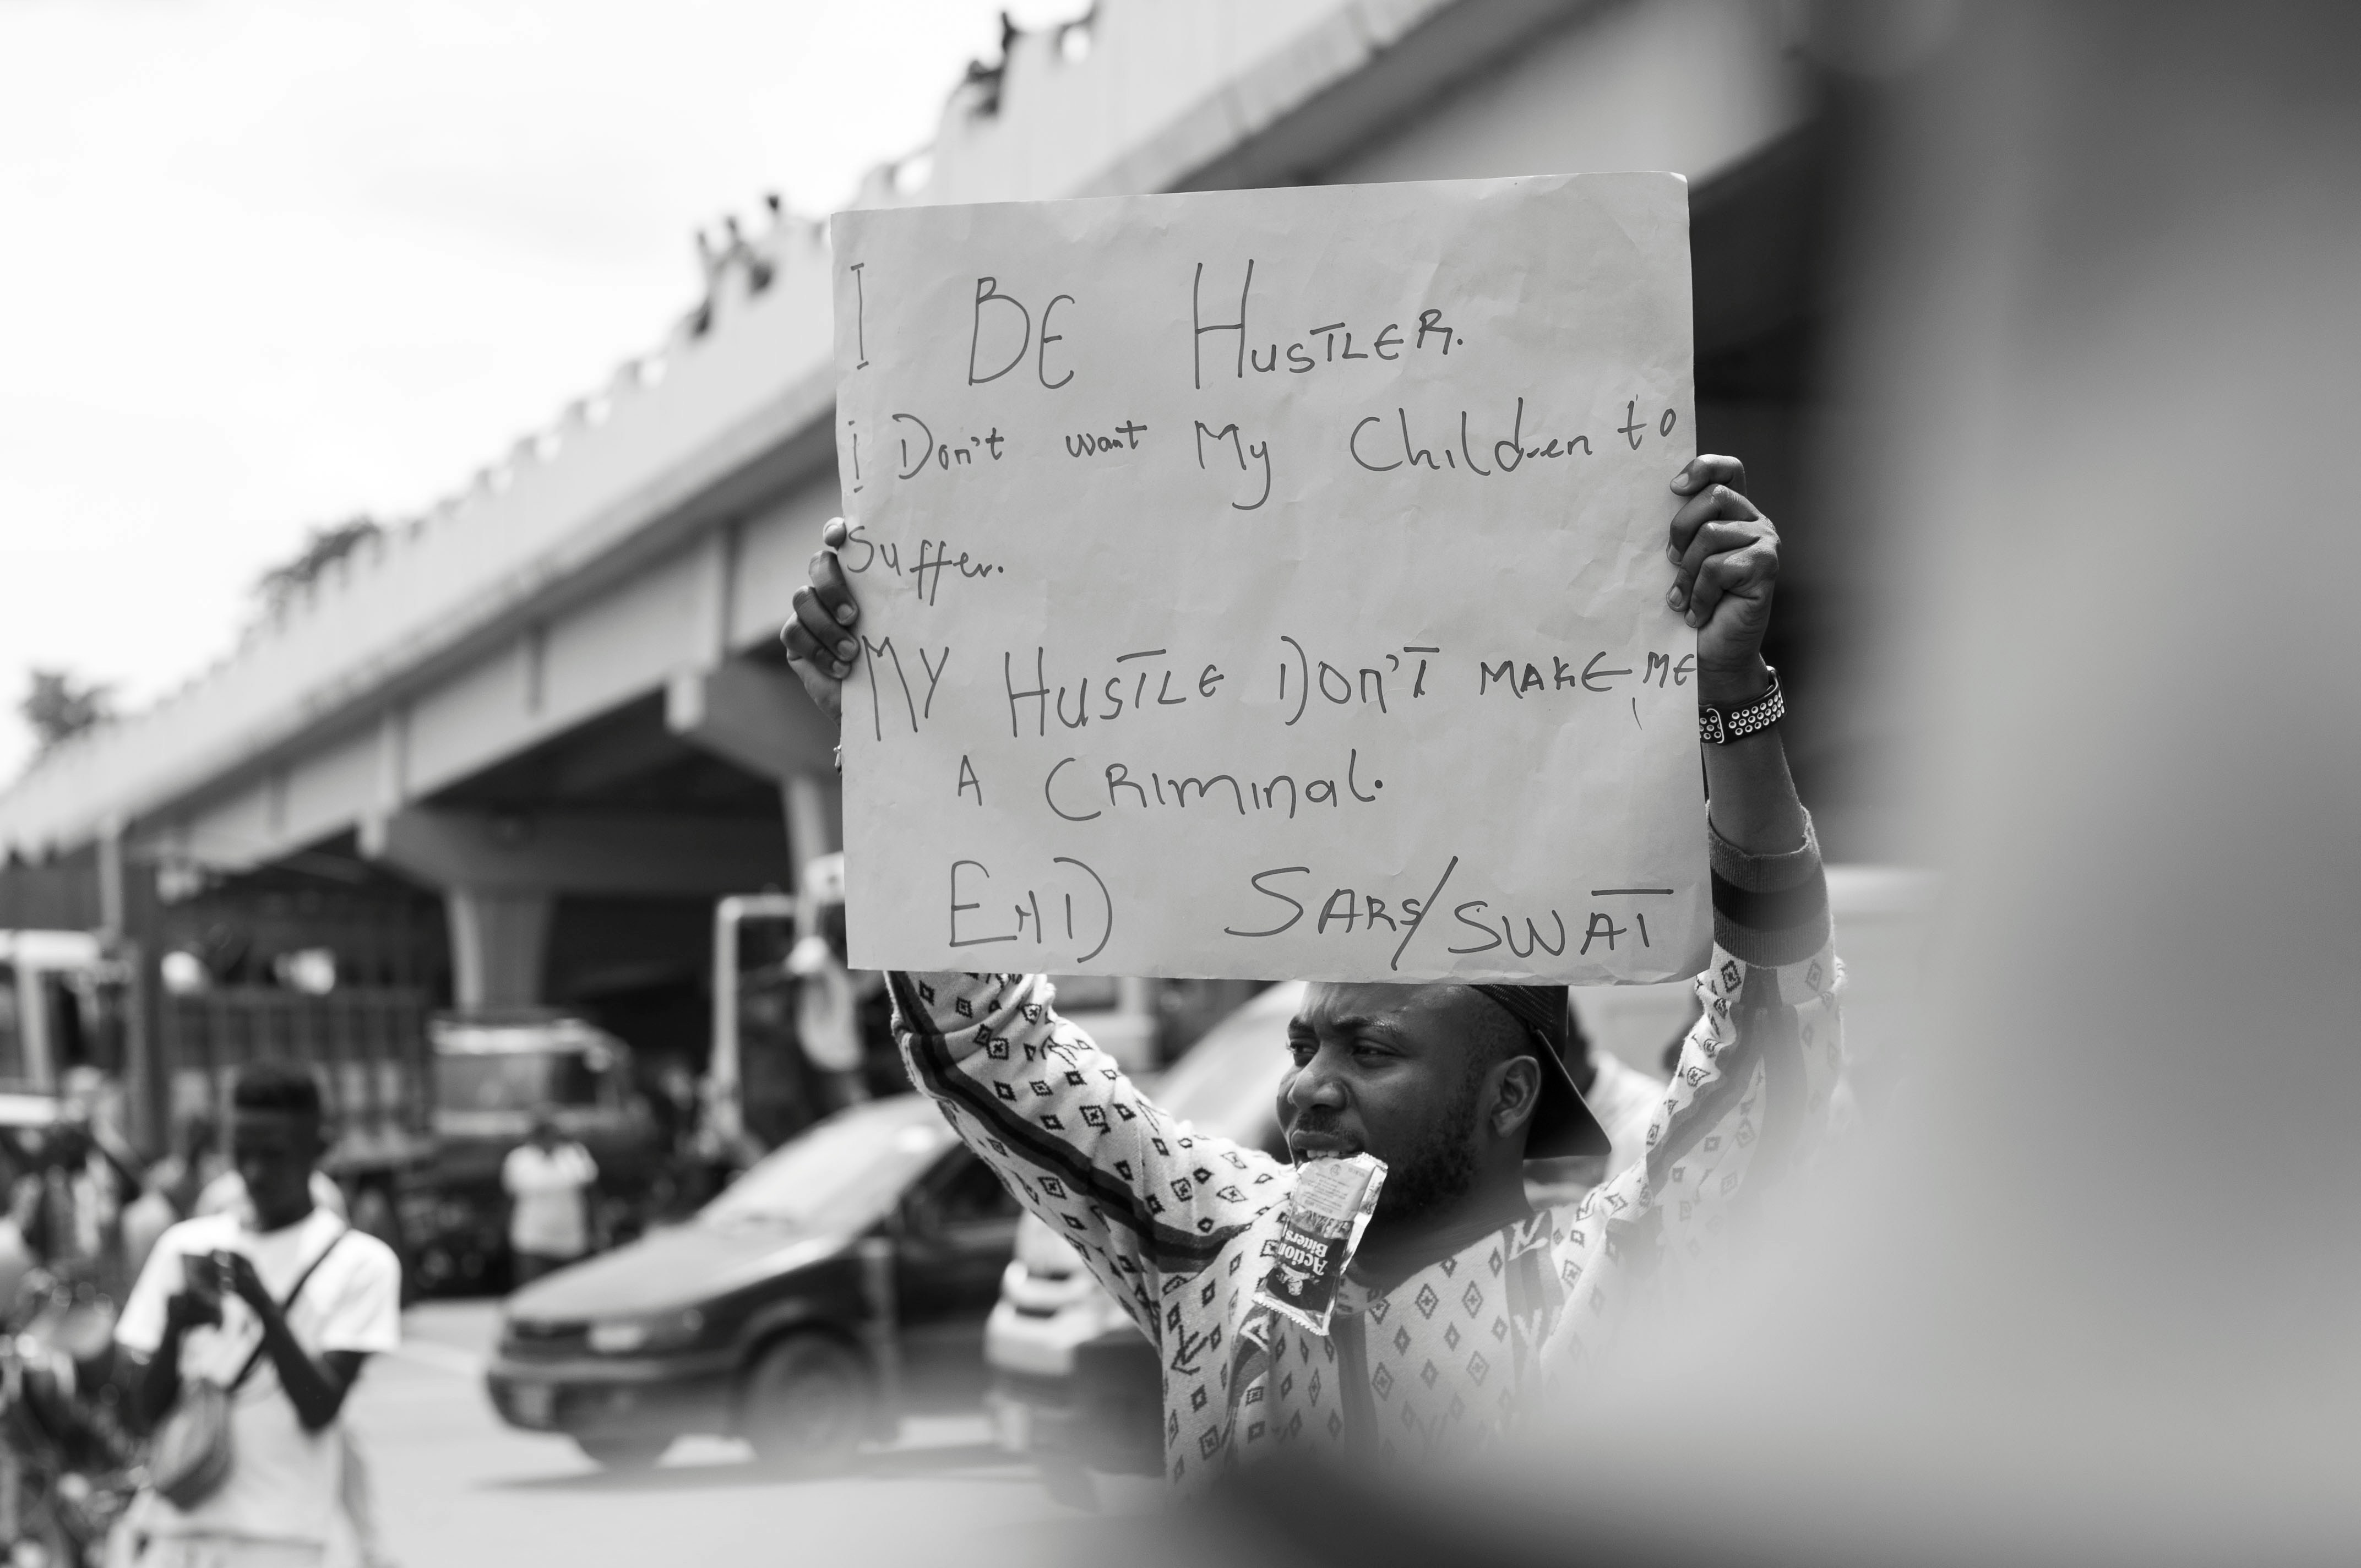 I BE HUSTLER.
i Don't want My Children to
Suffer.
MY HUSTLE DON'T MAKE ME
A CRIMINAL.
END SARS/SWAT
Action
Bitters